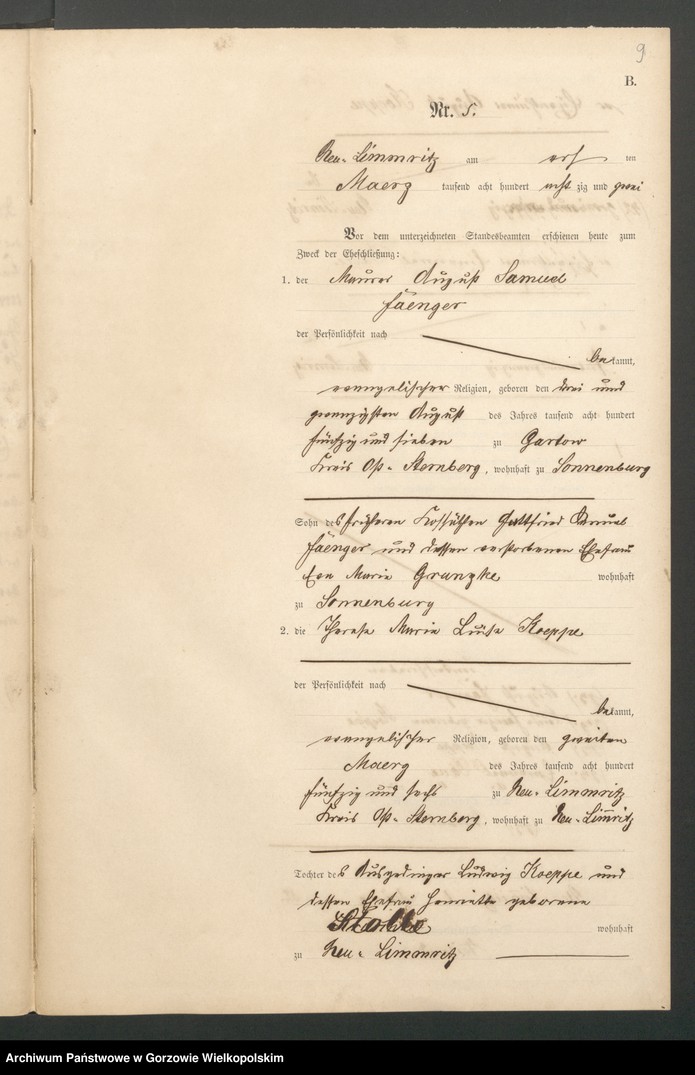 9
B.
Nr. 5.
Neu-Limmritz am ten
Maerz tausend acht hundert acht zig und zwei
Vor dem unterzeichneten Standesbeamten erschienen heute zum
Zweck der Eheschließung:
1. der Maurer August Samuel
Jaenger
der Persönlichkeit nach
bekannt,
evangelischer Religion, geboren den drei und
zwanzigsten August des Jahres tausend acht hundert
fünfzig und sieben zu Gartow
Kreis Ost-Sternberg, wohnhaft zu Sonnenburg
Sohn des früheren Kossäthen Gottfried
Jaenger und dessen verstorbenen Ehefrau
Eva Marie Grunzke wohnhaft
zu Sonnenburg
2. die Therese Marie Luise Koeppe
der Persönlichkeit nach
bekannt,
evangelischer Religion, geboren den zweiten
Maerz des Jahres tausend acht hundert
fünfzig und sechs zu Neu-Limmritz
Kreis Ost-Sternberg, wohnhaft zu Neu-Lim̅ritz
Tochter des Ausgedinger Ludwig Koeppe und
dessen Ehefrau Henriette geborene
wohnhaft
zu Neu-Limmritz
Archiwum Państwowe w Gorzowie Wielkopolskim